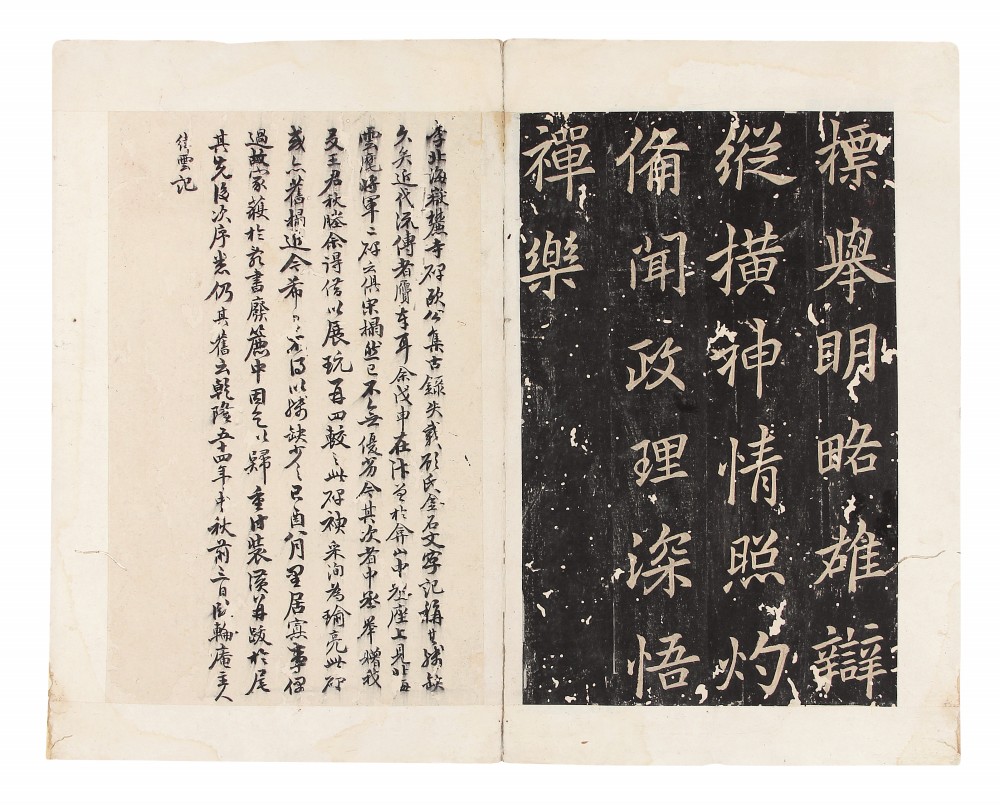 標舉明略雄辯
縱橫神情照灼
備聞政理深悟
禪樂
李北海嶽麓寺碑歐公集古錄失載顧氏金石文字記稱其殘缺
久矣近代流傳者贋本耳余戊申在汴曾於弇山中丞座上見北海
雲麾將軍二碑云俱宋搨然已不無優劣今其次者中丞舉贈我
友王君秋塍余得借以展玩再四較之此碑神采洵為瑜亮此碑
或亦舊搨近今希有不得以殘缺少之己酉八月里居寡事偶
過故家獲於叢書廢簏中因乞以歸重付裝潢再跋於尾
其先後次序悉仍其舊云乾隆五十四年中秋前三日輪庵主人
雲記